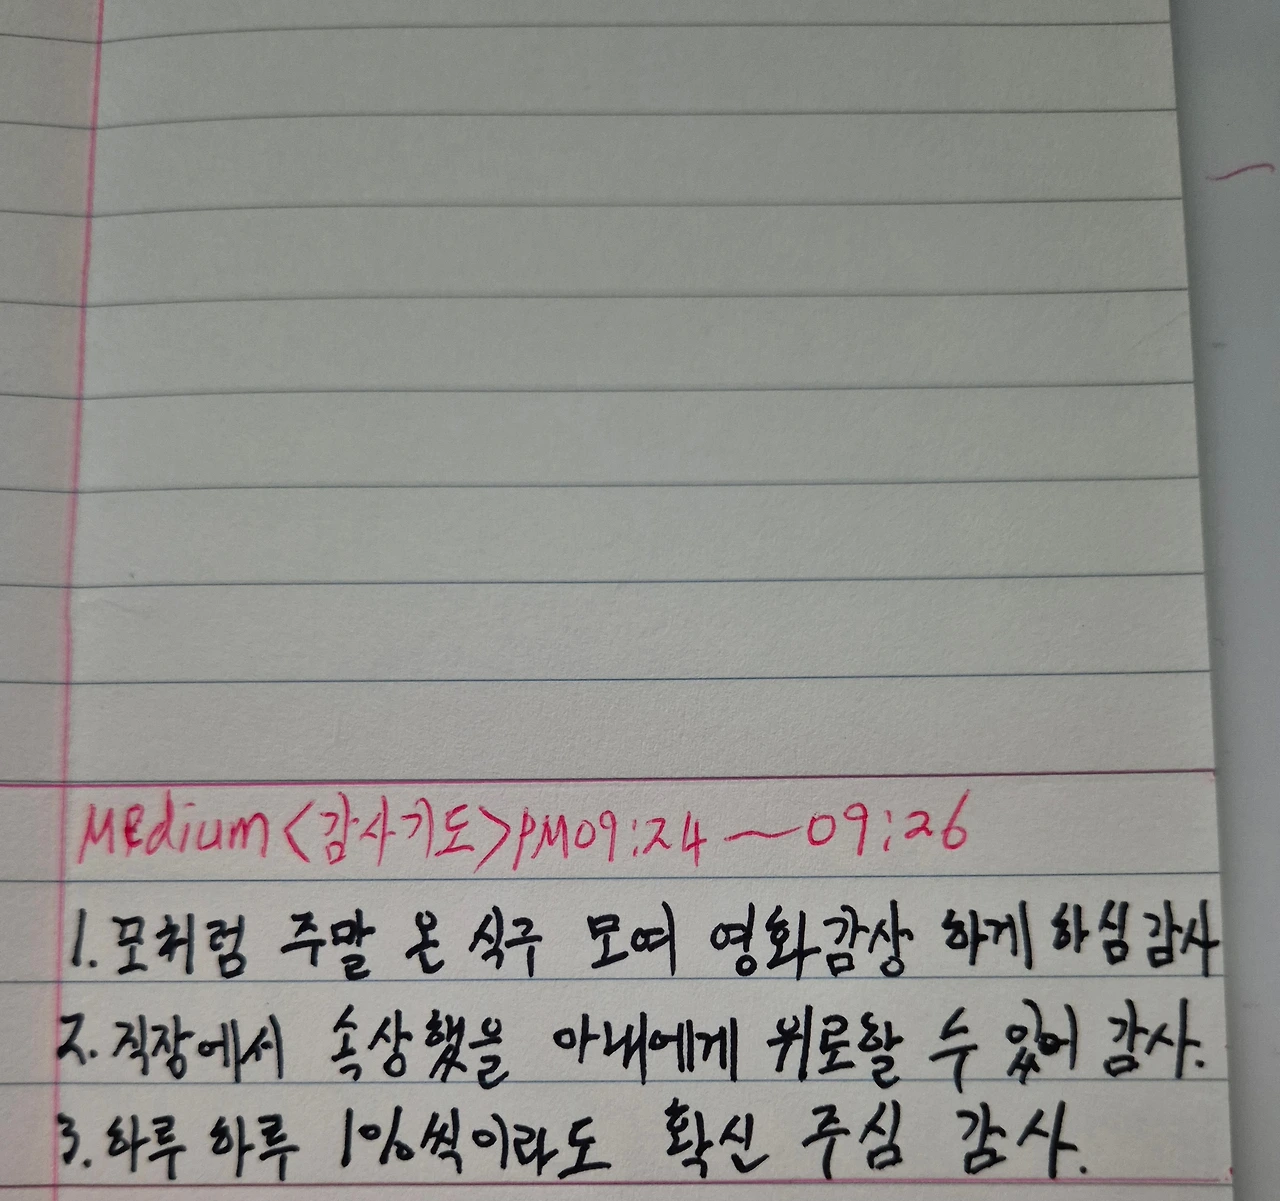 Medium<감사기도>PM09:24~09:26
1. 모처럼 주말 온 식구 모여 영화감상 하게 하심 감사
2. 직장에서 속상했을 아내에게 위로할 수 있어 감사.
3. 하루 하루 1%씩이라도 확신 주심 감사.